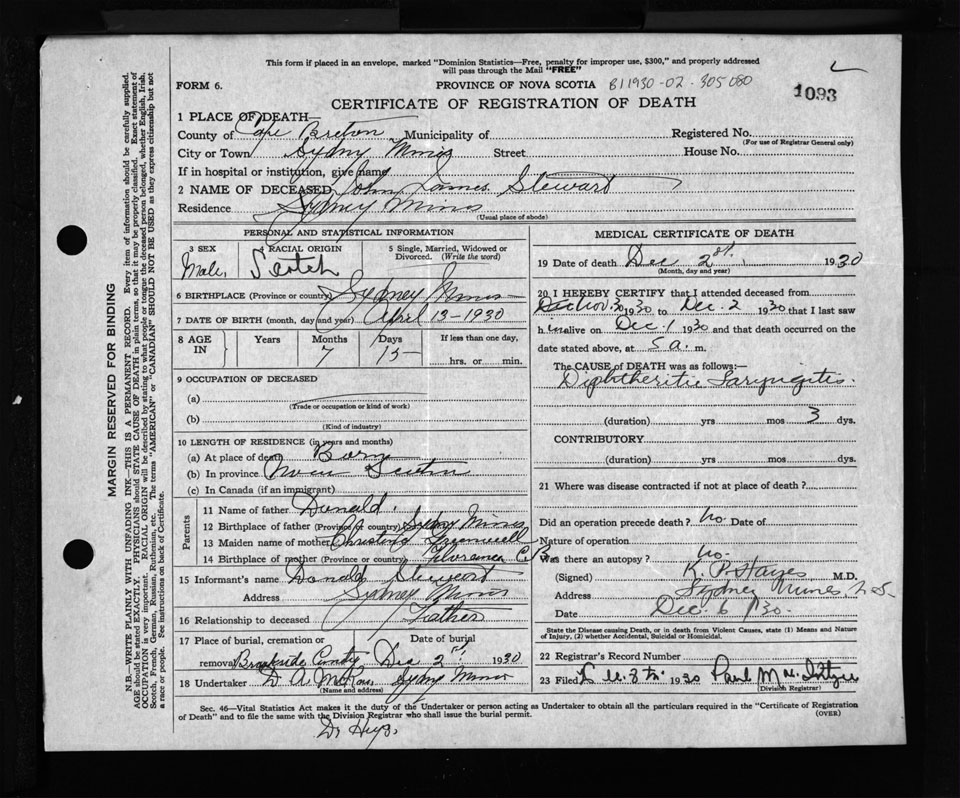 This form if placed in an envelope, marked "Dominion Statistics—Free, penalty for improper use, $300," and properly addressed
will pass through the Mail "FREE"
FORM 6. PROVINCE OF NOVA SCOTIA B11930-02-305080 1093
CERTIFICATE OF REGISTRATION OF DEATH
1 PLACE OF DEATH—
County of Cape Breton Municipality of Registered No.
(For use of Registrar General only)
City or Town Sydney Mines Street House No.
If in hospital or institution, give name
2 NAME OF DECEASED John James Stewart
Residence Sydney Mines
(Usual place of abode)
PERSONAL AND STATISTICAL INFORMATION
3 SEX 4 RACIAL ORIGIN 5 Single, Married, Widowed or
Divorced. (Write the word)
Male, Scotch
6 BIRTHPLACE (Province or country) Sydney Mines
7 DATE OF BIRTH (month, day and year) April 13-1930
8 AGE IN Years Months Days If less than one day,
7 15 hrs. or min.
9 OCCUPATION OF DECEASED
(a)
(Trade or occupation or kind of work)
(b)
(Kind of industry)
10 LENGTH OF RESIDENCE (in years and months)
(a) At place of death Born
(b) In province Nova Scotia
(c) In Canada (if an immigrant)
Parents
11 Name of father Donald.
12 Birthplace of father (Province or country) Sydney Mines
13 Maiden name of mother Christina
14 Birthplace of mother (Province or country) Florence C.B.
15 Informant's name Donald Stewart
Address Sydney Mines
16 Relationship to deceased Father
17 Place of burial, cremation or Date of burial
removal Brookside Dec 2 1930
18 Undertaker D. A. Sydney Mines
(Name and address)
MEDICAL CERTIFICATE OF DEATH
19 Date of death Dec 2 1930
(Month, day and year)
20 I HEREBY CERTIFY that I attended deceased from
Nov. 30 1930 to Dec. 2 1930 that I last saw
him alive on Dec. 1 1930 and that death occurred on the
date stated above, at 5 a. m.
The CAUSE OF DEATH was as follows:—
Diphtheritic Laryngitis.
(duration) yrs mos. 3 dys.
CONTRIBUTORY
(duration) yrs mos. dys.
21 Where was disease contracted if not at place of death?
Did an operation precede death? no. Date of
Nature of operation
Was there an autopsy? no.
(Signed) K. P. Hayes M.D.
Address Sydney Mines N.S.
Date Dec. 6/30.
State the Disease causing Death, or in death from Violent Causes, state (1) Means and Nature
of Injury, (2) whether Accidental, Suicidal or Homicidal.
22 Registrar's Record Number
23 Filed 1930 Paul
Division Registrar)
Sec. 46—Vital Statistics Act makes it the duty of the Undertaker or person acting as Undertaker to obtain all the particulars required in the "Certificate of Registration
of Death" and to file the same with the Division Registrar who shall issue the burial permit. (OVER)
MARGIN RESERVED FOR BINDING
N.B.—WRITE PLAINLY WITH UNFADING INK—THIS IS A PERMANENT RECORD. Every item of information should be carefully supplied.
AGE should be stated EXACTLY. PHYSICIANS should STATE CAUSE OF DEATH in plain terms, so that it may be properly classified. Exact statement of
OCCUPATION is very important. RACIAL ORIGIN will be described by stating to what people or tongue the deceased person belonged, whether English, Irish,
Scotch, French, German, Russian, Ruthenian, etc. The terms "AMERICAN" or "CANADIAN" SHOULD NOT BE USED as they express citizenship but not
a race or people. See instructions on back of Certificate.